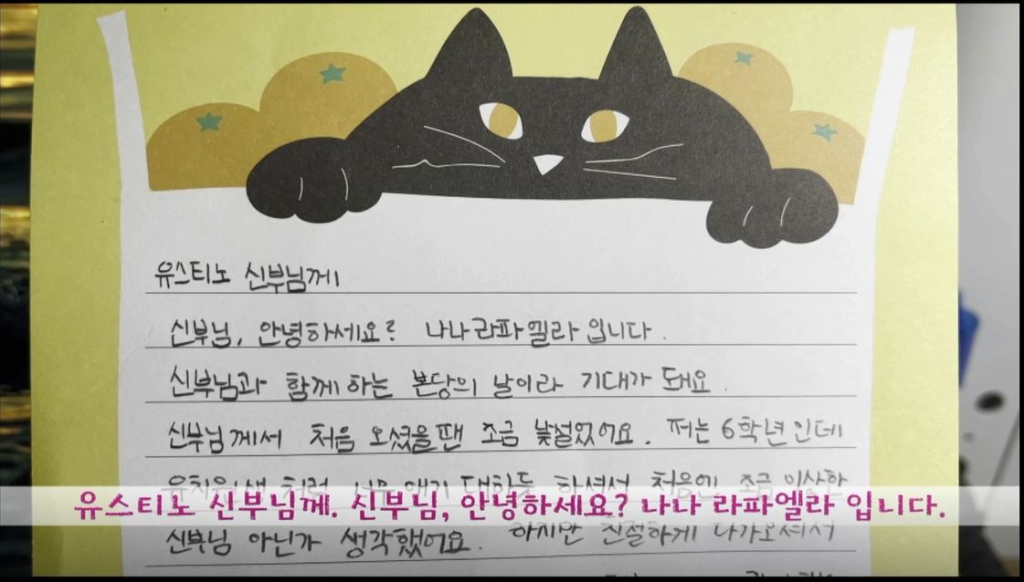 유스티노 신부님께
신부님, 안녕하세요? 나나 라파엘라 입니다.
신부님과 함께하는 본당의 날이라 기대가 돼요.
신부님께서 처음 오셨을땐 조금 낯설었어요. 저는 6학년인데
유치원생 처럼 너무 애기 대하듯 하셔서 처음엔 조금 이상한
유스티노 신부님께. 신부님, 안녕하세요? 나나 라파엘라 입니다.
신부님 아닌가 생각했어요. 하지만 친절하게 다가오셔서